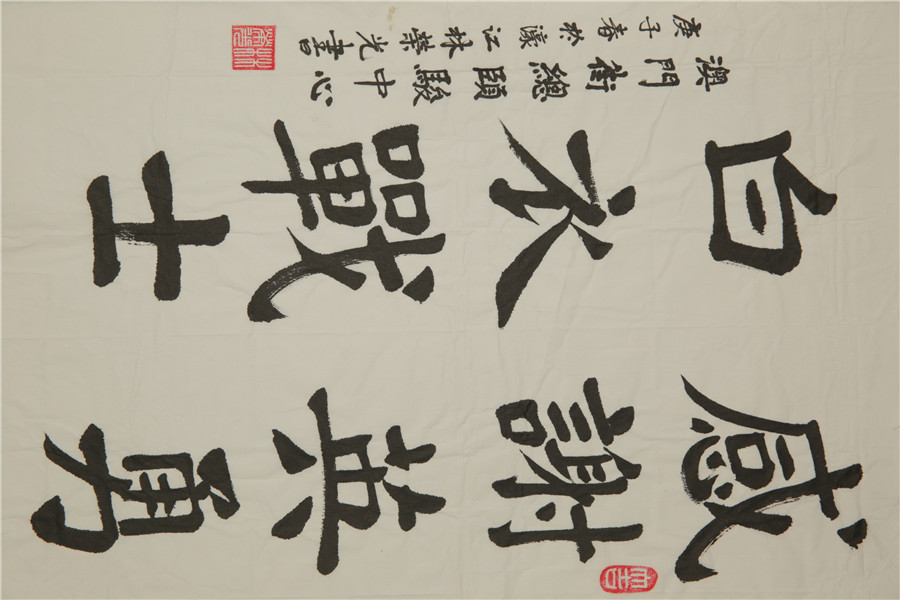 感謝英勇
白衣戰士
澳門街總頤駿中心
庚子春於濠江林榮光書